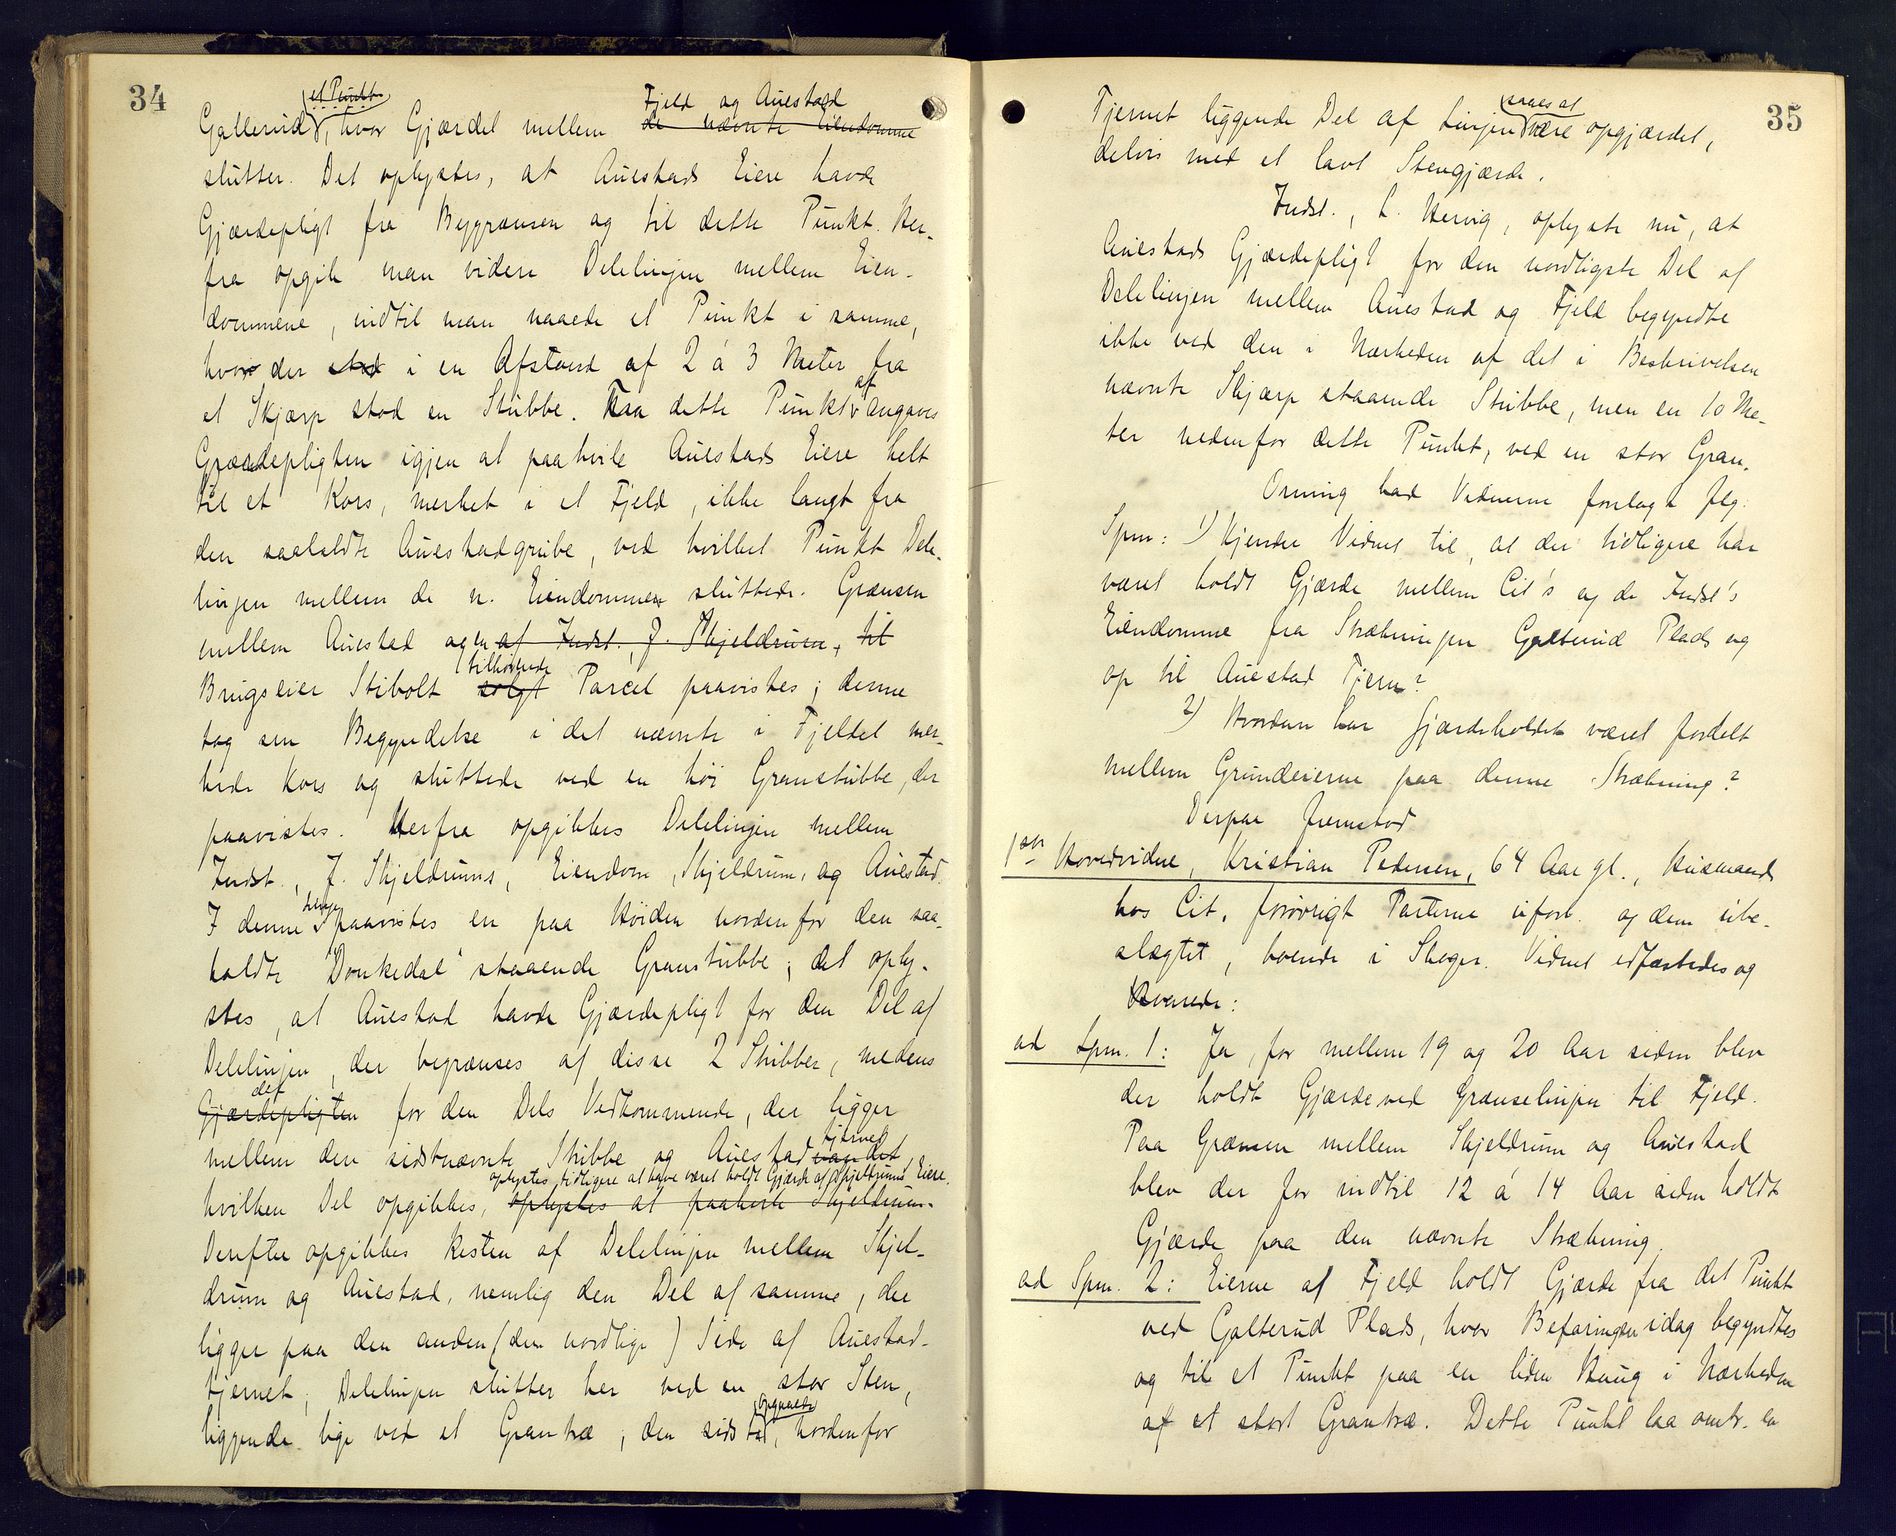 34
et Punkt
Fjeld og Auestad
Galterud, hvor Gjærdet mellem de nævnte Eiendomme
slutter. Det oplystes, at Auestads Eiere havde
Gjærdepligt fra Bygrænsen og til dette Punkt. Her-
fra opgik man videre Delelinjen mellem Eien-
dommene, indtil man naaede et Punkt i samme,
hvor der stod i en Afstand af 2 á 3 Meter fra
et Skjærp stod en Stubbe. Fra dette Punkt af angaves
Gjærdepligten igjen at paahvile Auestads Eiere helt
til et Kors, merket i et Fjeld, ikke langt fra
den saakaldte Auestadgrube, ved hvilket Punkt Dele-
linjen mellem de n. Eiendomme sluttede. Grænsen
mellem Auestad og en af Indst., J. Skjeldrum, til
tilhørende
Brugseier Stibolt solgt Parcel paavistes; denne
tog sin Begyndelse i det nævnte i Fjeldet mer-
kede Kors og sluttede ved en høi Granstubbe, der
paavistes. Herfra opgikkes Delelinjen mellem
Indst., J. Skjeldrums, Eiendom, Skjeldrum, og Auestad.
I denne Linje paavistes en paa Høiden nordenfor den saa-
kaldte "Donkedal" staaende Granstubbe; det oply-
stes, at Auestad havde Gjærdepligt for den Del af
Delelinjen, der begrænses af disse 2 Stubber, medens
det
Gjærdepligten for den Dels Vedkommende, der ligger
mellem den sidstnævnte Stubbe og Auestadtjernet var det,
oplystes tidligere at have været holdt Gjærde af Skjeldrums Eiere.
hvilken Del opgikkes, oplystes at paahvile Skjeldrum.
Derefter opgikkes Resten af Delelinjen mellem Skjel-
drum og Auestad, nemlig den Del af samme, der
ligger paa den anden (den nordlige) Side af Auestad-
tjernet; Delelinjen slutter her ved en stor Sten,
liggende lige ved et Grantræ; den sidst opgaaede, nordenfor
35
Tjernet liggende Del af Linjen saaes at være opgjærdet,
delvis med et lavt Stengjærde.
Indst., L. Hervig, oplyste nu, at
Auestads Gjærdepligt for den nordligste Del af
Delelinjen mellem Auestad og Fjeld begyndte
ikke ved den i Nærheden af det i Beskrivelsen
nævnte Skjærp staaende Stubbe, men en 10 Me-
ter nedenfor dette Punkt, ved en stor Gran.
Orning bad Vidnerne forelagt flg.
Spm: 1) Kjender Vidnet til, at der tidligere har
været holdt Gjærde mellem Cit's og de Indst's
Eiendomme fra Strækningen Galterud Plads og
op til Auestad Tjern?
2) Hvordan har Gjærdeholdet været fordelt
mellem Grundeierne paa denne Strækning?
Derpaa fremstod
1ste Hovedvidne, Kristian Pedersen, 64 Aar gl., Husmand
hos Cit., forøvrigt Parterne uforb. og dem ube-
slægtet, boende i Skoger. Vidnet edfæstedes og
svarede:
ad Spm. 1: Ja, for mellem 19 og 20 Aar siden blev
der holdt Gjærde ved Grænselinjen til Fjeld.
Paa Grænsen mellem Skjeldrum og Auestad
blev der for indtil 12 á 14 Aar siden holdt
Gjærde paa den nævnte Strækning.
ad Spm. 2: Eierne af Fjeld holdt Gjærde fra det Punkt
ved Galterud Plads, hvor Befaringen idag begyndtes
og til et Punkt paa en liden Haug i Nærheden
af et stort Grantræ. Dette Punkt laa omtr. en